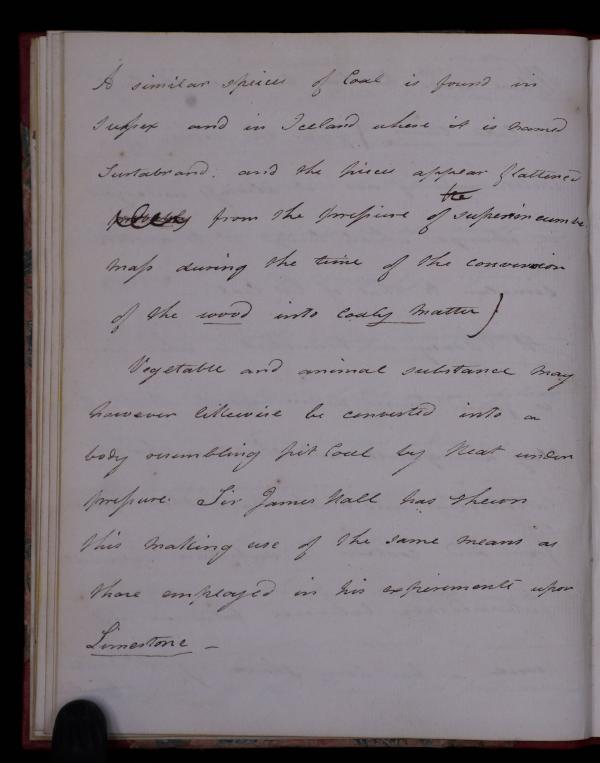 A similar species of Coal is found in
Sussex and in Iceland where it is named
Surtabrand. and the pieces appear flattened
the
from the pressure of superincumbe
mass during the time of the conversion
of the wood into coaly matter)
Vegetable and animal substance may
however likewise be converted into a
body resembling pit Coal by Heat under
pressure. Sir James Hall has shewn
this making use of the same means as
those employed in his experiments upon
Limestone –